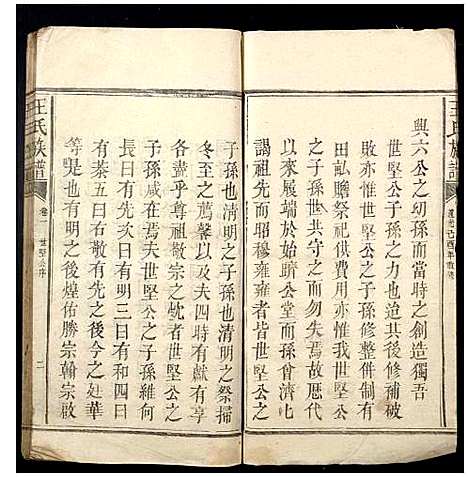 與六公之幼孫而當時之創造獨吾
世堅公子孫之力也迨其後修補破
敗亦惟世堅公之子孫修整併制有
田畆贍祭祀供奠亦惟我世堅公之
子孫世共守之而勿失焉故歷代
以來展墓於始祖堂而孫曾濟濟
謁祖先而昭穆雍雍者皆世堅公之
王氏族譜
子孫也清明之子孫也清明之祭掃
冬至之薦馨以及夫四時有獻有享
各盡乎尊祖敬宗之忱者世堅公之
子孫咸在焉夫世堅公之子孫維何
長曰有先次曰有明三曰有和四曰
有茶五曰有訓有先之後今之廷華
等是也有明之後煌佑勝宗翰宗啟
王氏族譜
卷一
世堅公序
二